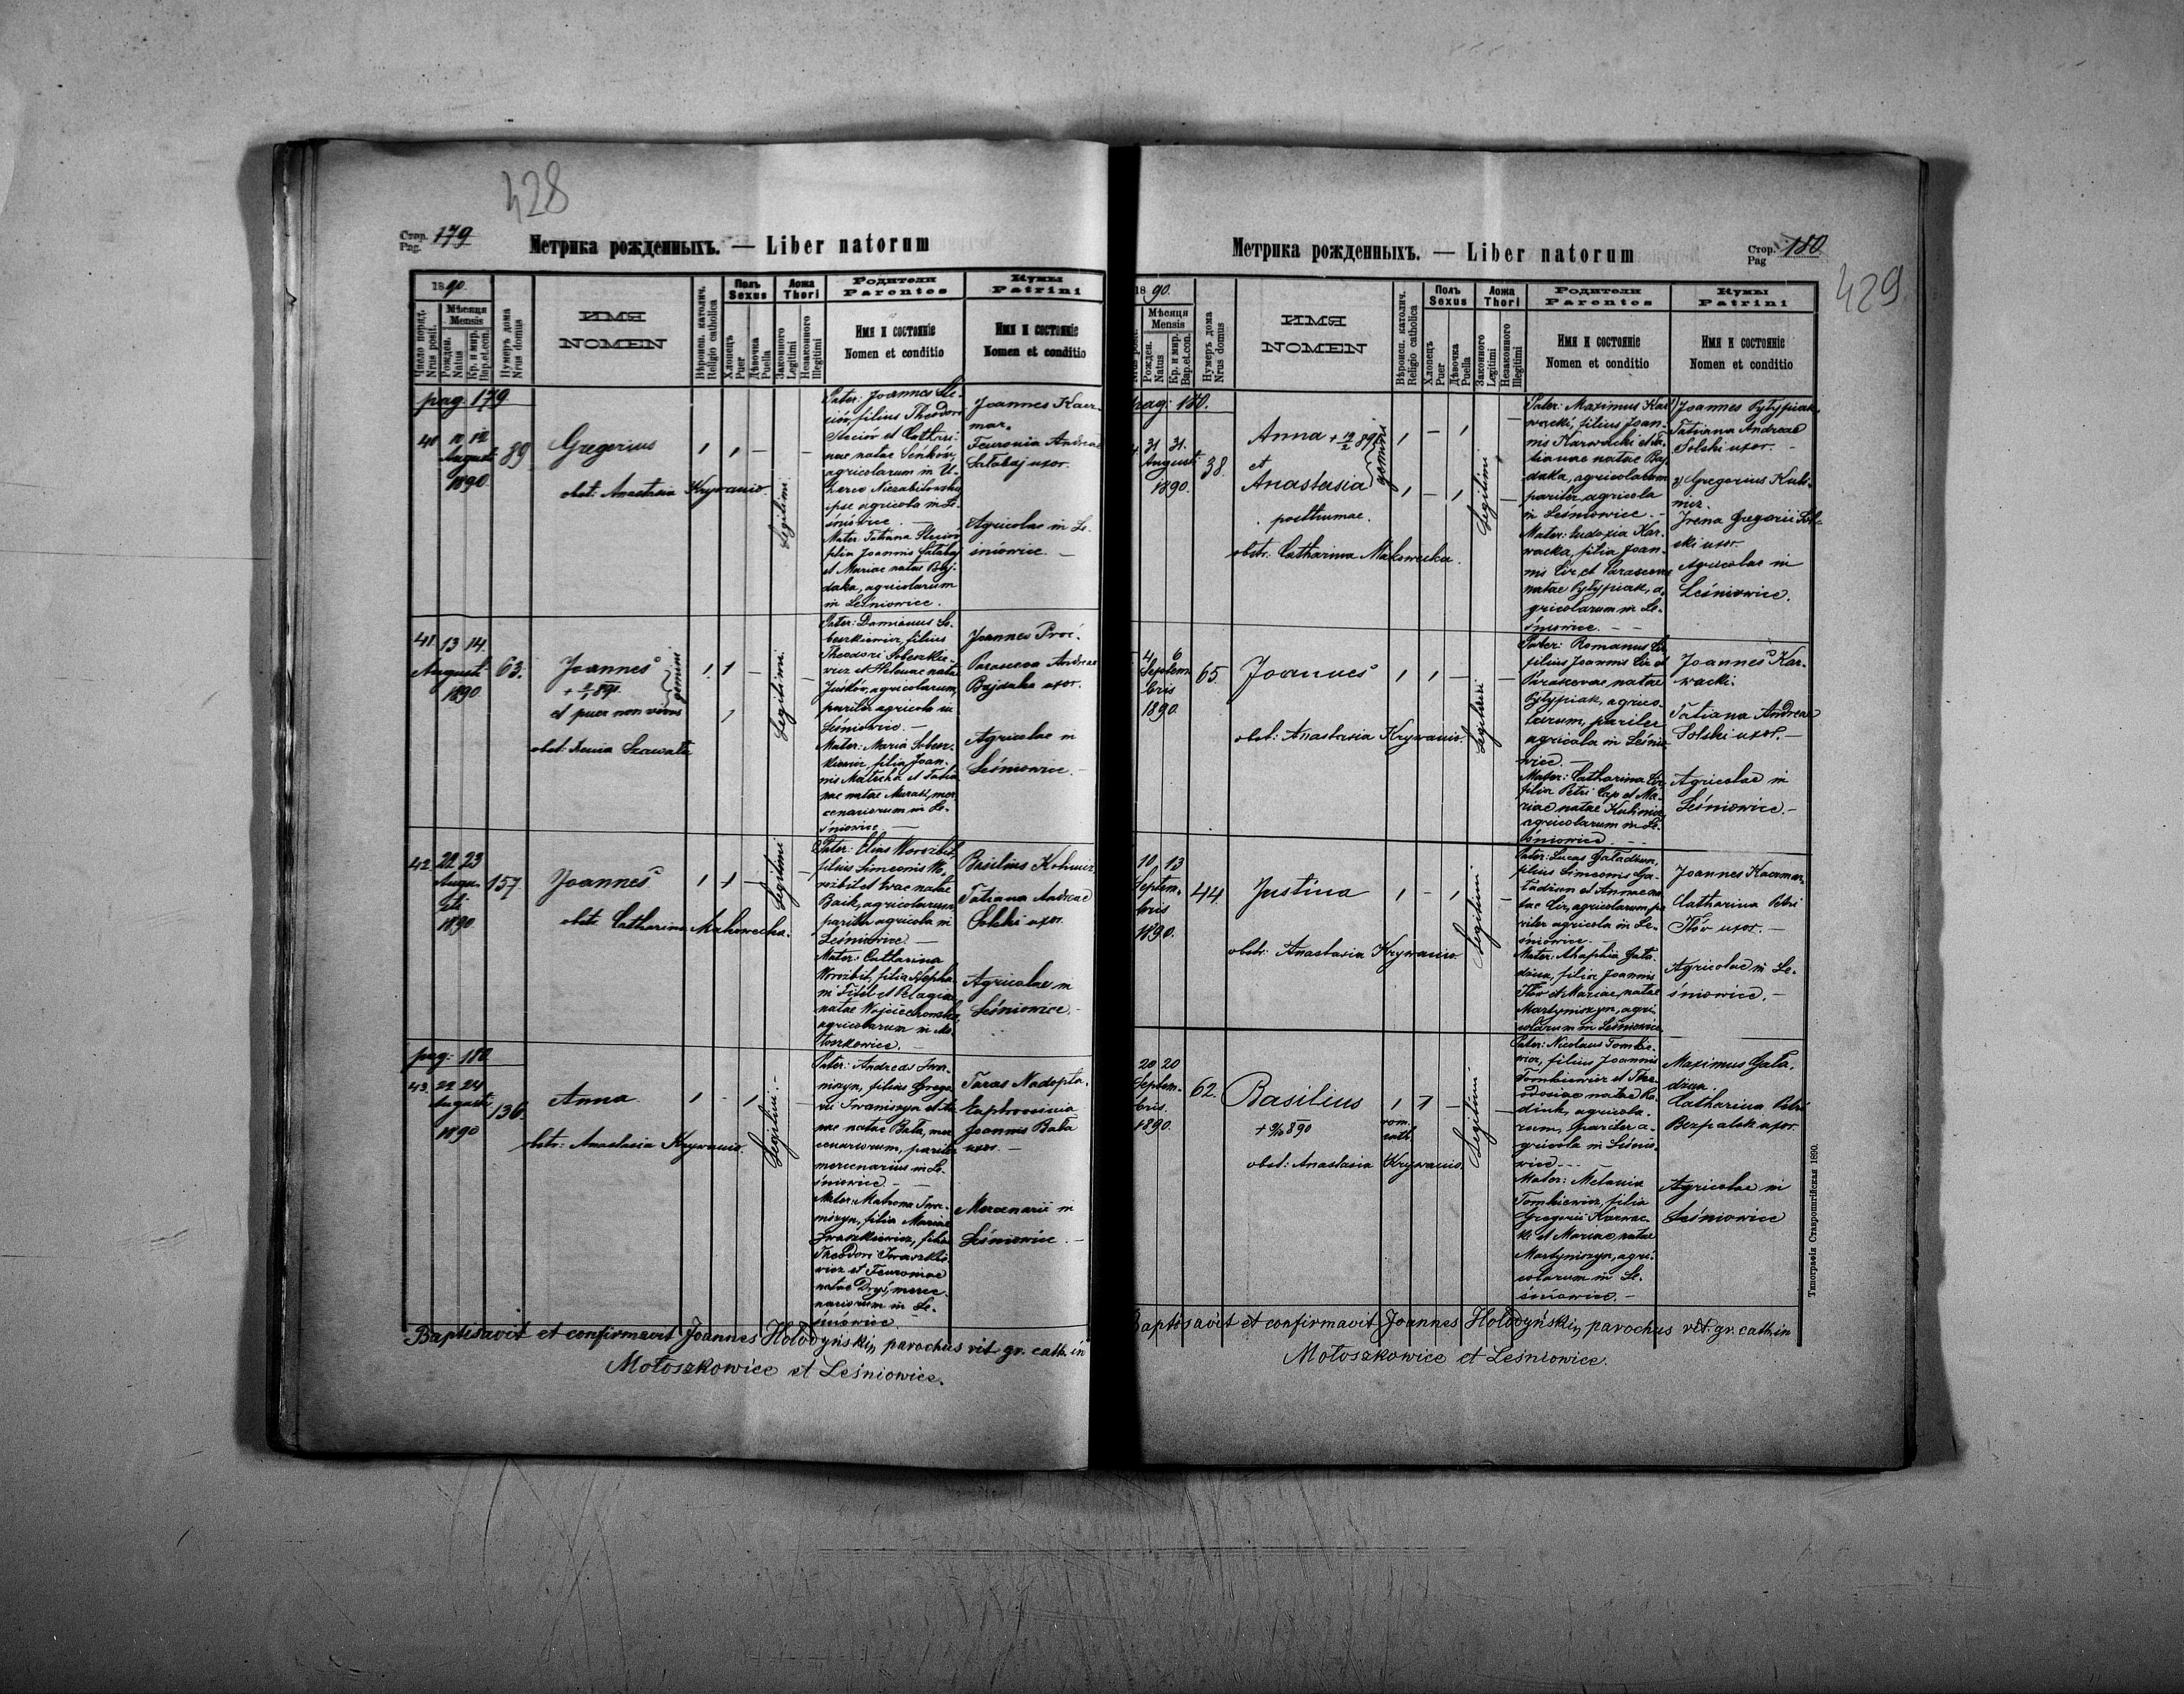 428
Стор. Pag. 179
Метрика рожденныхъ. — Liber natorum
1890.
Мѣсяця
Mensis
Число поряд.
Nrus posit.
Рожден.
Natus
Кр. и мир.
Bap. et. con.
Нумеръ дома
Nrus domus
ИМЯ
NOMEN
Вѣроисп. католич.
Religio catholica
Полъ
Sexus
Хлопецъ
Puer
Дѣвочка
Puella
Ложа
Thori
Законного
Legitimi
Незаконного
Illegitimi
Родители
Parentes
Имя и состояніе
Nomen et conditio
Кумы
Patrini
Имя и состояніе
Nomen et conditio
pag: 179
40 12
August
1890
89
Gregorius
obst: Anastasia Krywanio.
Legitimi
Pater: Joannes Ste-
ciów, filius Theodori
Steciów et Cathari-
nae natae Seńków,
agricolarum in
ipse agricola in Le-
śniowice. —
Mater: Tatiana Steciów
filia Joannis Sałabaj
et Mariae natae Baj-
daka, agricolarum
in Leśniowice.
Joannes Kacz-
mar.
Feuronia Andreae
Sałabaj uxor.
Agricolae in Le-
śniowice. —
41 13 14
Augusti
1890
63.
Joannes
gemini
et puer non vivus
obst: Szawała
Legitimi.
Pater: Damianus So-
beszkiewicz, filius
Theodori Sobeszkie-
wicz et Helenae natae
Juśków, agricolarum,
pariter agricola in
Leśniowice —
Mater: Maria Sobesz-
kiewicz, filia Joan-
nis Matecha et Tatia-
nae natae Murak, mer-
cenariorum in Le-
śniowice —
Joannes Proć.
Parasceva Andreae
Bajdaka uxor.
Agricolae in
Leśniowice. —
42 22 23
Augu-
sti
1890
157
Joannes
obst: Catharina Makowecka.
Legitimi
Pater: Elias Worozbit,
filius Simeonis Wo-
rozbit et Evae natae
Baik, agricolarum,
pariter agricola in
Leśniowice. —
Mater: Catharina
Worozbit, filia Stepha-
ni Fitél et Pelagiae
natae Wojciechowska,
agricolarum in Mo-
łoszkowice. —
Basilius Kohmir.
Tatiana Andreae
Solski uxor.
Agricolae in
Leśniowice. —
pag: 180
43. 22 24
Augusti
1890
136.
Anna
obstr: Anastasia Krywanio.
Legitimi. —
Pater: Andreas Iwa-
niszyn, filius Grego-
rii Iwaniszyn et An-
nae natae Bała, mer-
cenariorum, pariter
mercenarius in Le-
śniowice. —
Mater: Matrona Iwa-
niszyn, filia Mariae
Iwaszkiewicz, filia
Theodori Iwaszkie-
wicz et Feuroniae
natae Dryś, merce-
nariorum in Le-
śniowice
Taras Nadopta.
Euphrosinia
Joannis Bała
uxor. —
Mercenarii in
Leśniowice. —
Baptisavit et confirmavit Joannes Hołodyński, parochus rit. gr. cath. in
Mołoszkowice et Leśniowice.
Метрика рожденныхъ. — Liber natorum
Стор. Pag 180
429
1890.
Мѣсяця
Mensis
Рожден.
Natus
Кр. и мир.
Bap. et. con.
Нумеръ дома
Nrus domus
ИМЯ
NOMEN
Вѣроисп. католич.
Religio catholica
Полъ
Sexus
Хлопецъ
Puer
Дѣвочка
Puella
Ложа
Thori
Законного
Legitimi
Незаконного
Illegitimi
Родители
Parentes
Имя и состояніе
Nomen et conditio
Кумы
Patrini
Имя и состояніе
Nomen et conditio
pag: 180.
31 31.
August
1890.
38.
Anna
et
Anastasia
gemini
posthumae.
obstr: Catharina Makowecka.
Legitimi
Pater: Maximus Kar-
wacki, filius Joan-
nis Karwacki et Ta-
tianae natae Baj-
daka, agricolarum
pariter agricola
in Leśniowice. —
Mater: Eudoxia Kar-
wacka, filia Joan-
nis Cir, et Parascevae
natae Pyłypiak, a-
gricolarum in Le-
śniowice. —
Joannes Pyłypiak.
Tatiana Andreae
Solski uxor. —
2) Gregorius Kuli-
micz.
Irena Gregorii Sol-
ski uxor.
Agricolae in
Leśniowice.
4 6
Septem-
bris
1890.
65.
Joannes
obst: Anastasia Krywanio.
Legitimi
Pater: Romanus Cir,
filius Joannis Cir et
Parascevae natae
Pyłypiak, agrico-
larum, pariter
agricola in Leśnio-
wice. —
Mater: Catharina Cir,
filia Petri Cap et Ma-
riae natae Kulimicz
agricolarum in Le-
śniowice. —
Joannes Kar-
wacki.
Tatiana Andreae
Solski uxor. —
Agricolae in
Leśniowice. —
10 13
Septem-
bris
1890.
44.
Justina
obstr: Anastasia Krywanio
Legitimi
Pater: Lucas Gaładżun,
filius Simeonis Ga-
ładżun et Annae na-
tae Cir, agricolarum, pa-
riter agricola in Le-
śniowice. —
Mater: Ahaphia Gała-
dżun, filia Joannis
Tłór et Mariae, natae
Martyniszyn, agri-
colarum in Leśniowice
Joannes Kaczmar.
Catharina Petri
Tłór uxor. —
Agricolae in Le-
śniowice. —
20 20
Septem-
bris.
1890.
62.
Basilius
+ 9/10 890
rom.
cath.
obst: Anastasia Krywanio.
Legitimi
Pater: Nicolaus Tomkie-
wicz, filius Joannis
Tomkiewicz et The-
odosiae natae
agricola-
rum, pariter a-
gricola in Leśnio-
wice —
Mater: Melania
Tomkiewicz, filia
Gregorii Karwac-
ki et Mariae, natae
Martyniszyn, agri-
colarum in Le-
śniowice. —
Maximus Gała-
dżun.
Catharina Petri
Bezpalsk uxor.
Agricolae in
Leśniowice
Baptisavit et confirmavit Joannes Hołodyński, parochus rit. gr. cath. in
Mołoszkowice et Leśniowice.
Типографія Ставропигійская 1890.